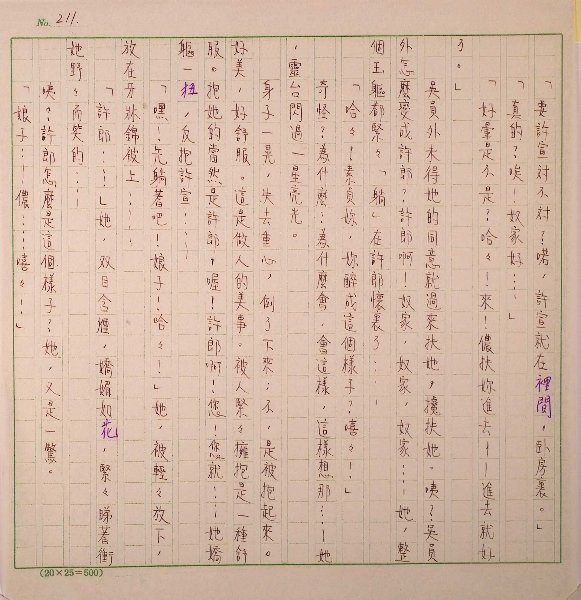 No. 211.
「要許宣對不對?喏,許宣就在裡間,臥房裏。」
「真的?唉!奴家好…」
「好暈是不是?哈々!來!儂扶妳進去!!進去就好
了。」
吳員外未得她的同意就過來扶她,攙扶她。咦?吳員
外怎麼變成許郎?許郎啊!奴家,奴家,奴家……她,整
個玉軀都緊々「躺」在許郎懷裏了……
「哈々!素貞妳,妳醉成這個樣子?嘻々!」
奇怪?為什麼…為什麼會,會這樣,這樣想那……!她
,靈台閃過一星亮光。
身子一晃,失去重心,倒了下來;不,是被抱起來。
好美,好舒服。這是做人的美事。被人緊々擁抱是一種舒
服。抱她的當然是許郎,喔!許郎啊!您!您就……她嬌
軀一扭,反抱許宣……
「嘿!先躺著吧!娘子!哈々!」她,被輕々放下,
放在牙牀錦被上……
「許郎……!」她,双目含煙,嬌媚如花,緊々睇著衝
她野々而笑的……
咦?許郎怎麼是這個樣子?她,又是一驚。
「娘子…!儂……嘻々!」
(20×25=500)